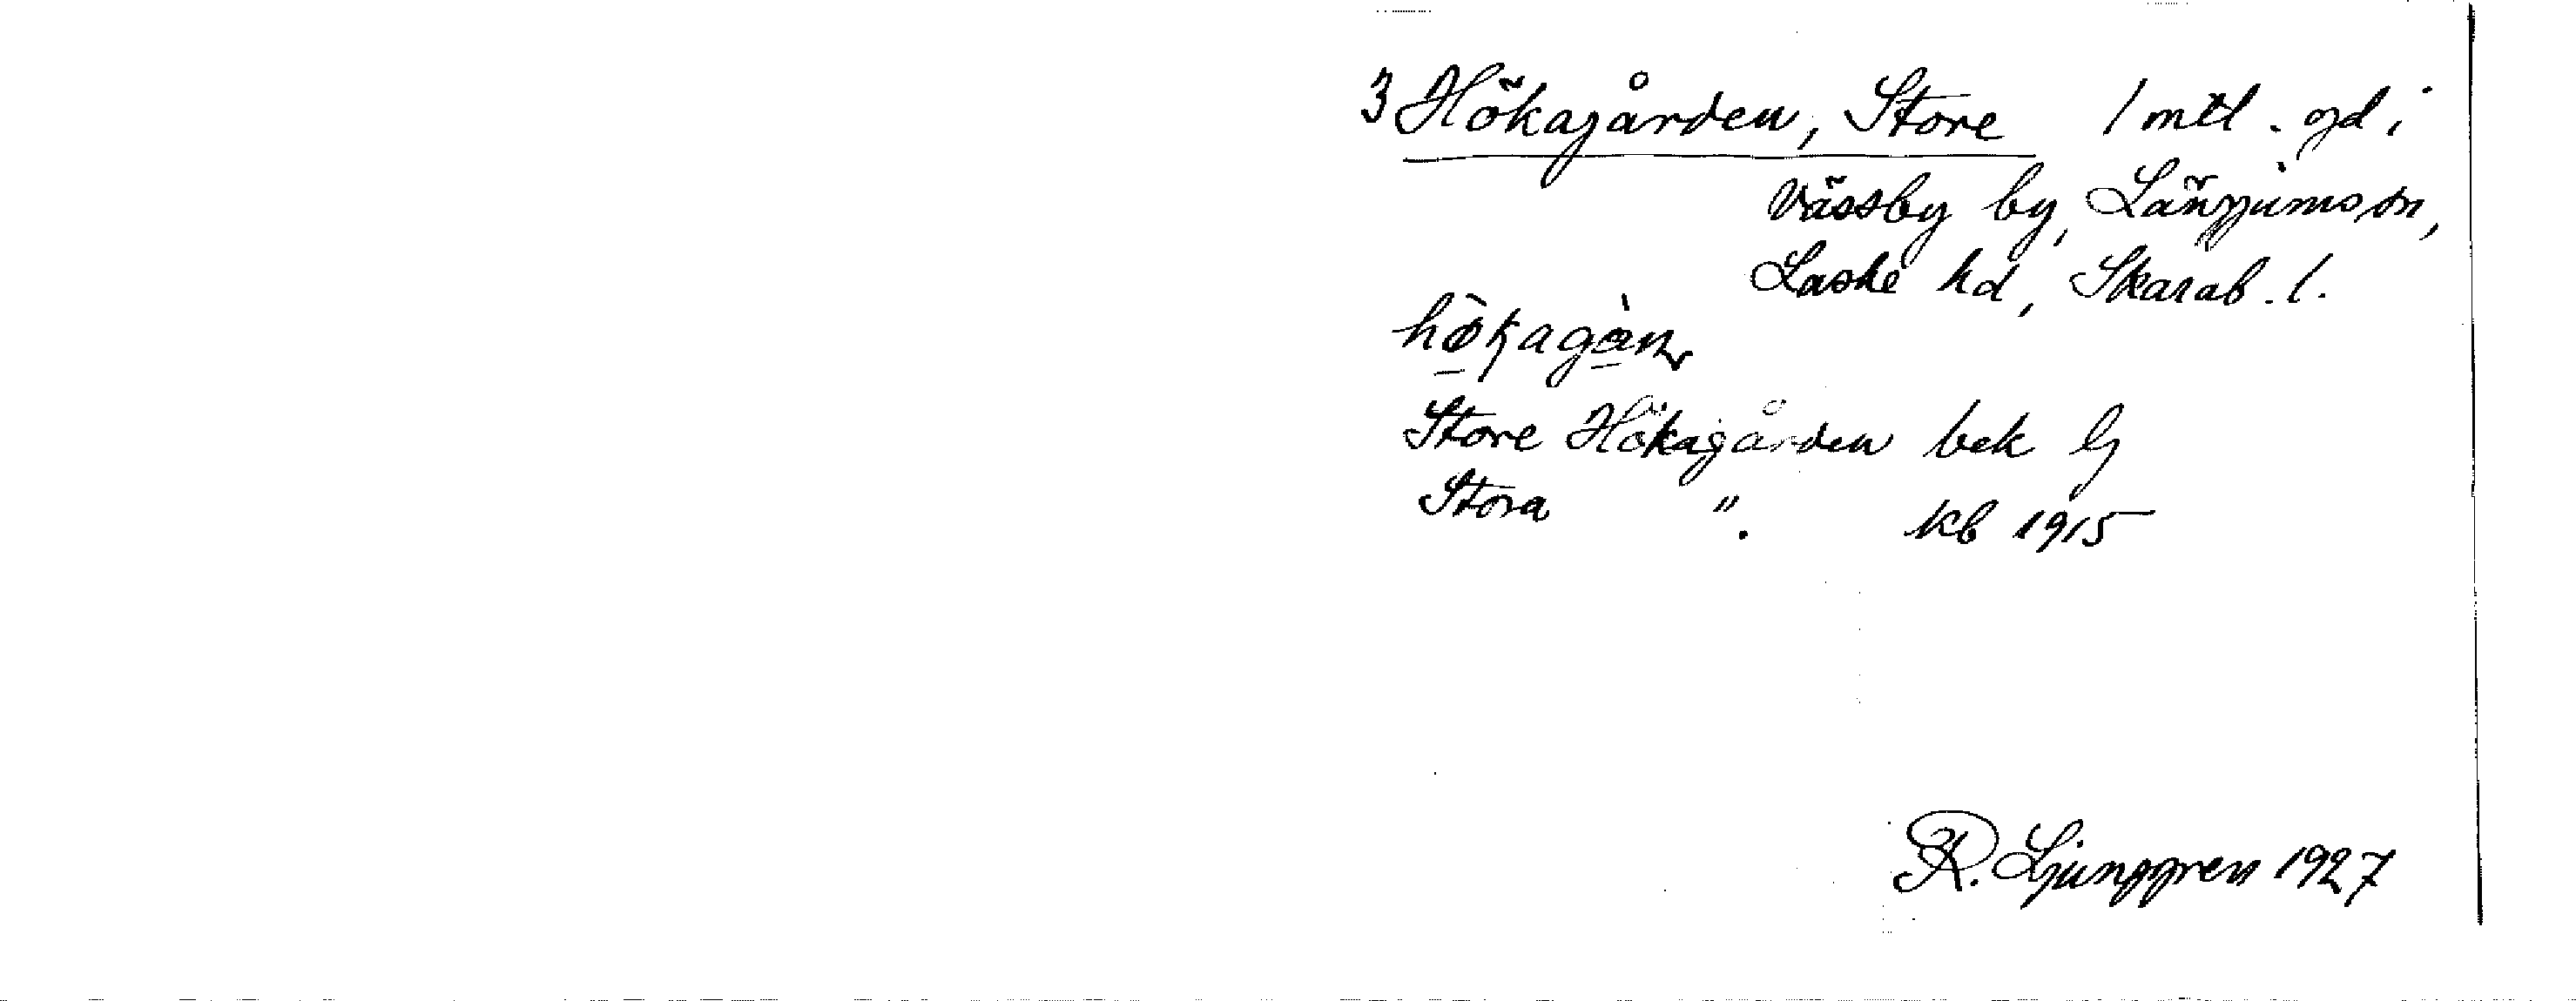 3 Hökagården, Store 1 mtl. gd i
Vässby by, Längjums sn,
Laske hd, Skarab. l.
hö̀kagàn
Store Hökagården bek Lj
Stora ". Kb 1915
R. Ljunggren 1927